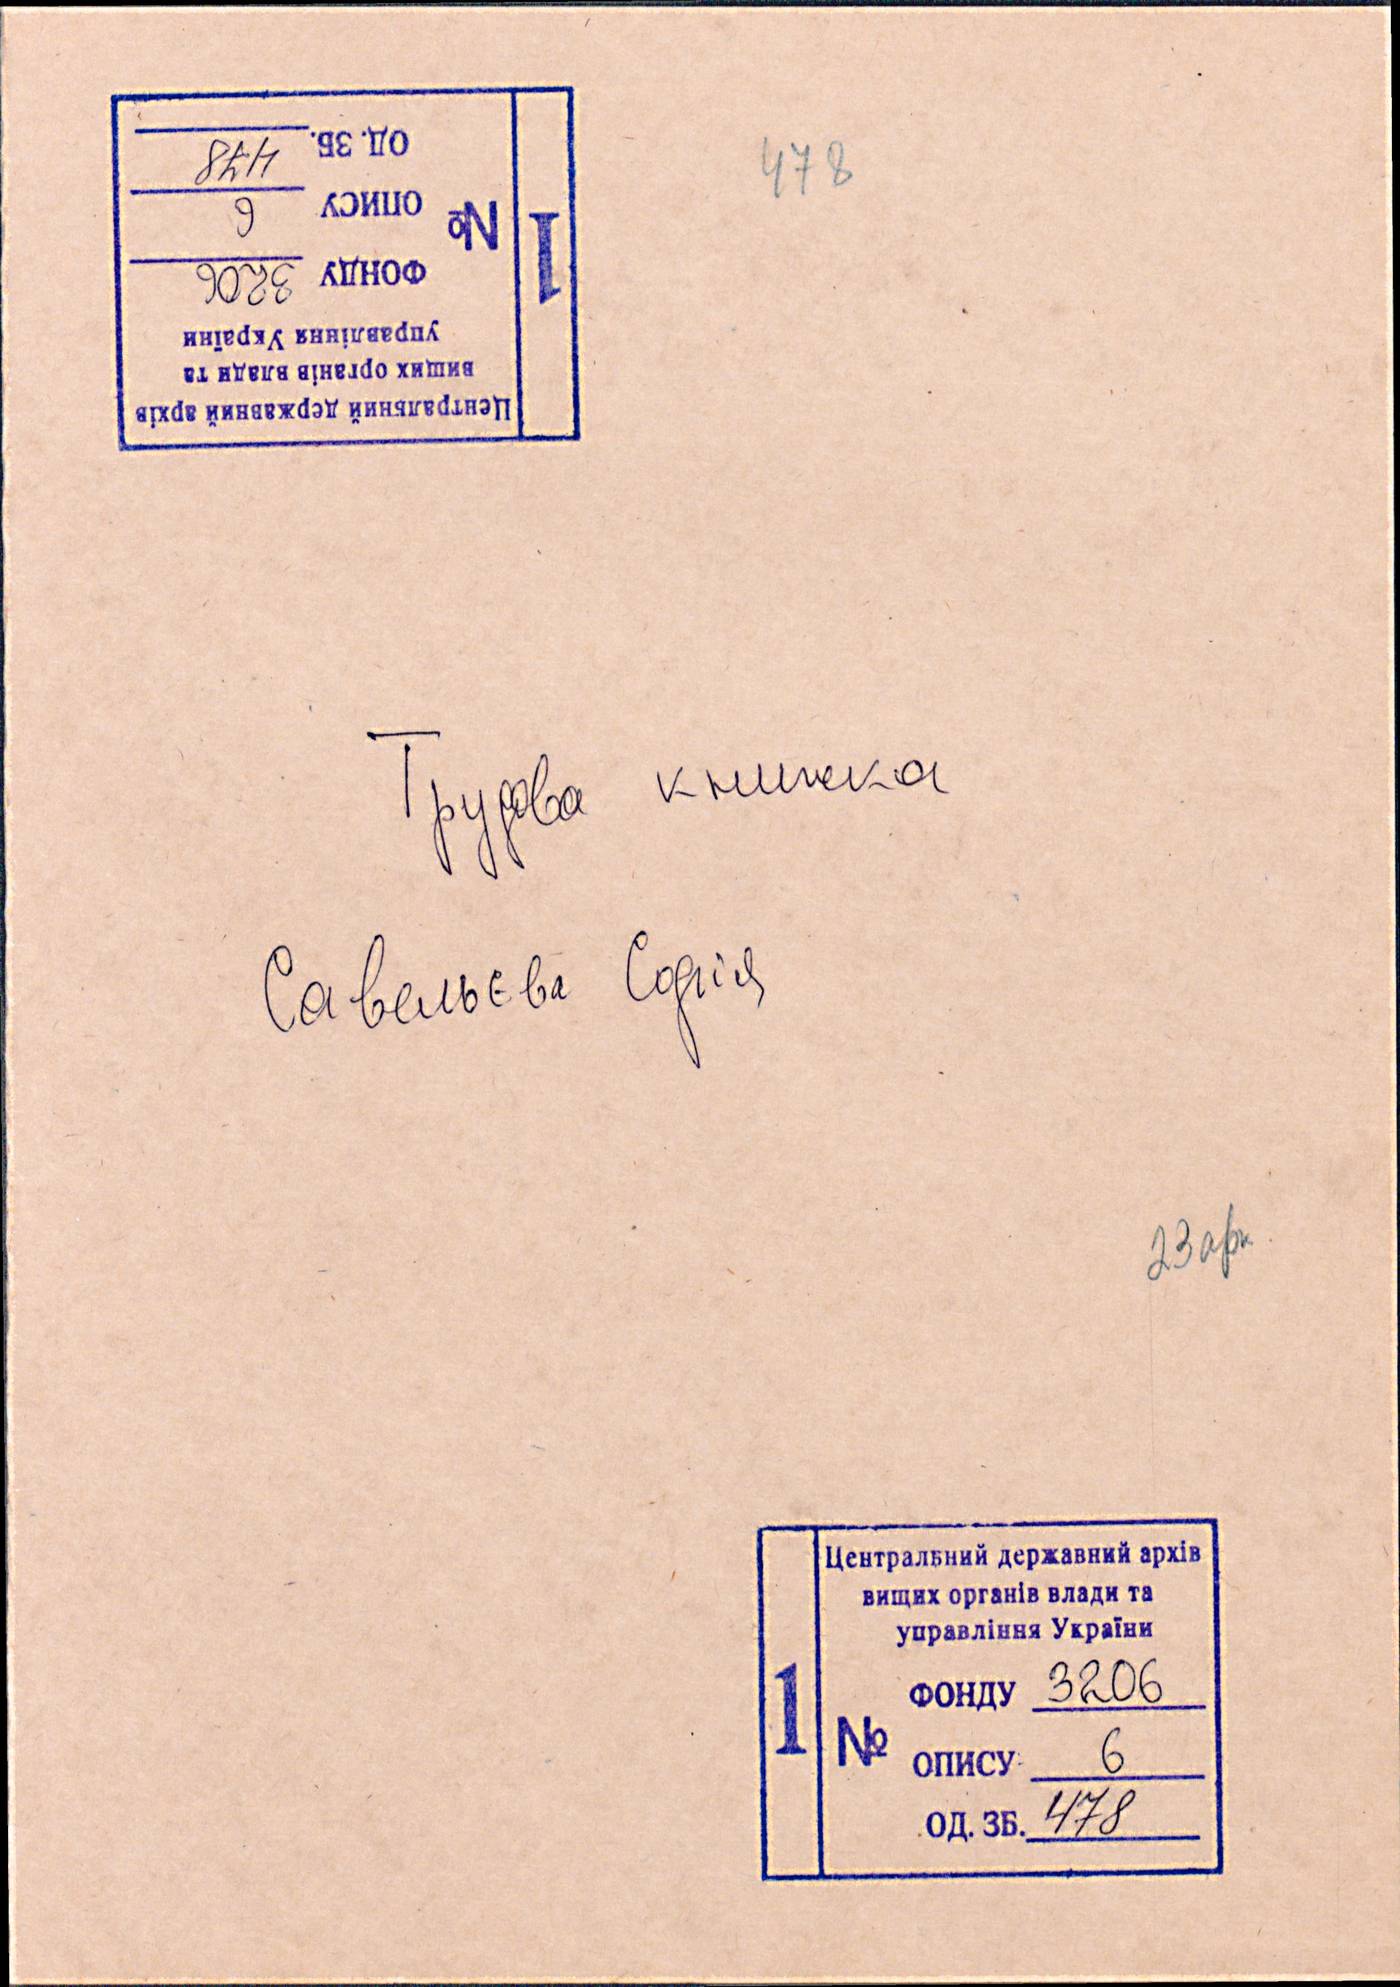 Центральний державний архів
вищих органів влади та
управління України
1
№
ФОНДУ 3206
ОПИСУ 6
ОД. ЗБ. 478
478
Трудова книжка
Савельєва Софія
23 арк.
Центральний державний архів
вищих органів влади та
управління України
1
№
ФОНДУ 3206
ОПИСУ 6
ОД. ЗБ. 478